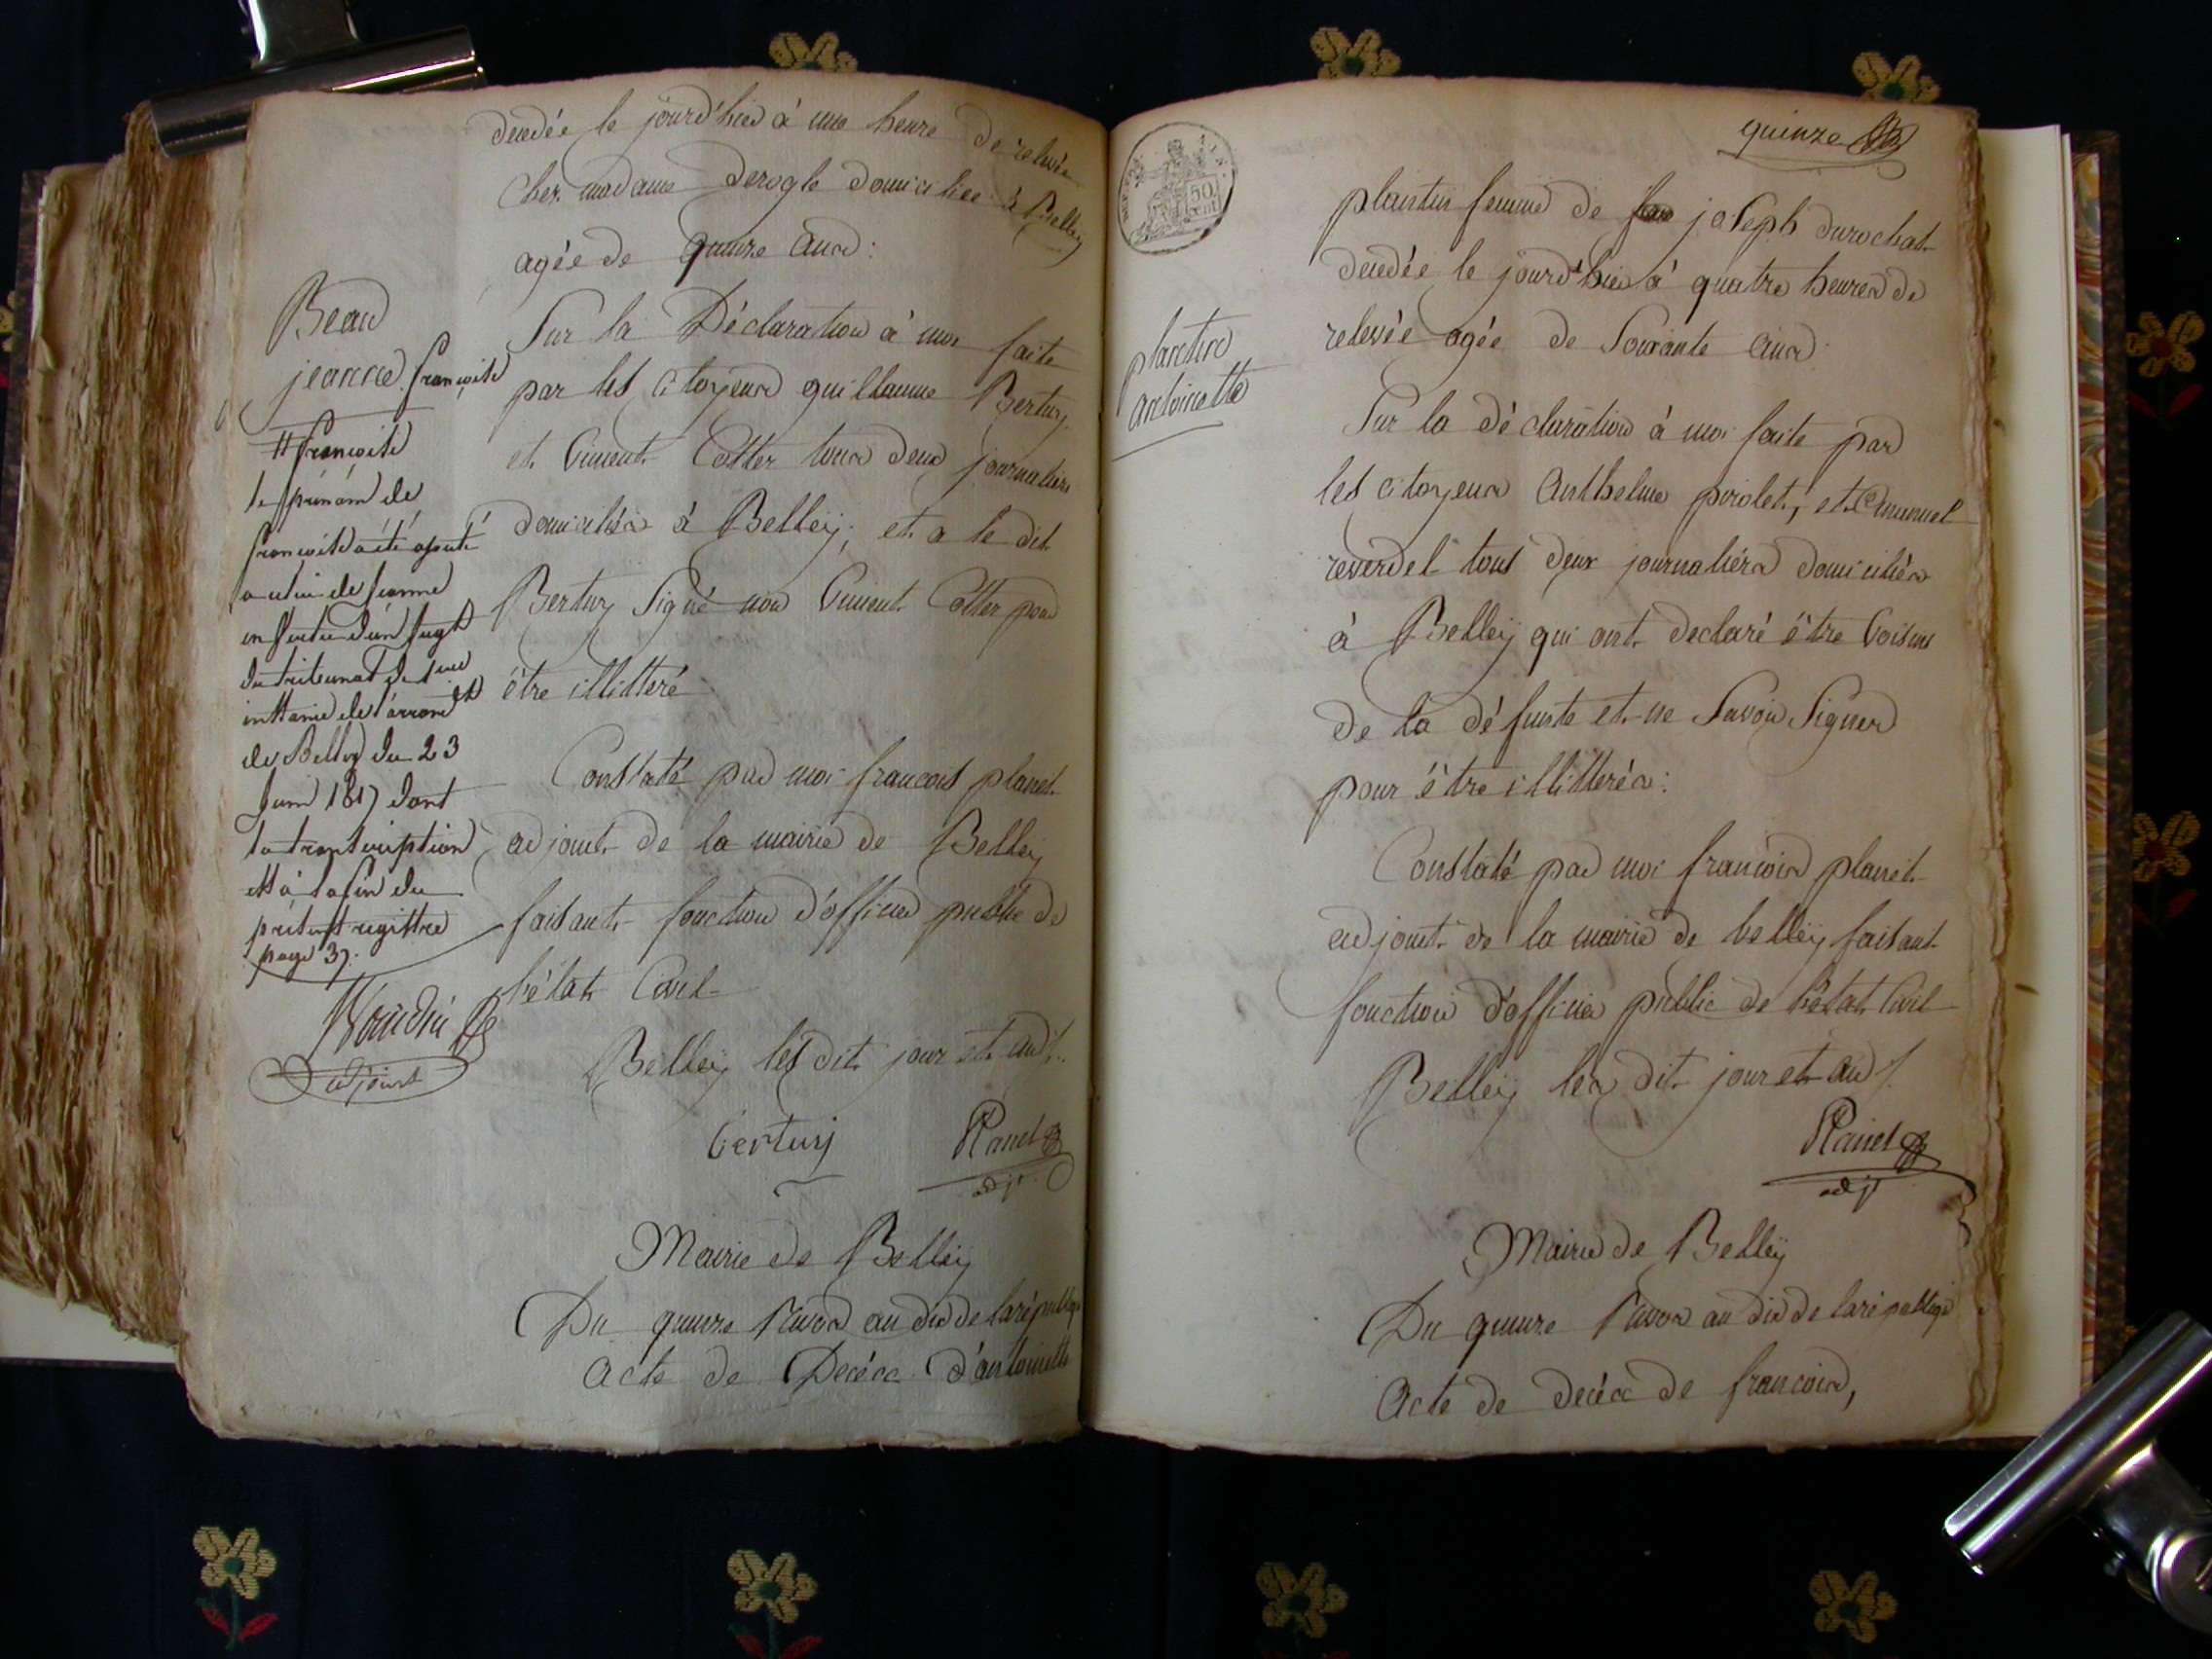 decedée le jourd'hier à une heure de relevée
chez madame derogle domiciliée à Belley
agée de quinze ans:
Beau
jeanne françoise
Sur la Déclaration à moi faite
par les citoyens guillaume Bertuy
et Vincent Cotter tous deux journaliers
domiciliés à Belleÿ, et a le dit
Bertuy Signé non Vincent Cotter pour
être illitteré
# françoise
le prénom de
françoise a été ajouté
a celui de jeanne
en suitte d'un jugt
du tribunal de 1ere
instance de l'arrondt
de Belley du 23
Juin 1817 dont
la transcription
est à la fin du
présent registre
page 37.
adjoint
Constaté par moi francois planet
adjoint de la mairie de Belleÿ
faisant fonction d'officier public de
l'état Civil
Belleÿ les dit jour et an /.
Bertuy Planet
adjt
Mairie de Belleÿ
Du quinze nivos an dix de la républiqe
Acte de Decés d'antoinette
quinze
50 cent
plantin
antoinette
plantin femme de joseph durochat
decedée le jourd'hier à quatre heures de
relevée agée de Soixante ans
Sur la déclaration à moi faite par
les citoyens Anthelme pirolet, et Emanuel
reverdel tous deux journaliérs domiciliés
à Belleÿ qui ont declaré être Voisins
de la défunte et ne Savoir Signer
pour être illitterés:
Constaté par moi francois planet
adjoint de la mairie de belleÿ faisant
fonction d'officier public de l'état Civil
Belleÿ les dit jour et an /.
Planet
adjt
Mairie de Belleÿ
Du quinze nivos an dix de la républiqe
Acte de decés de francois,